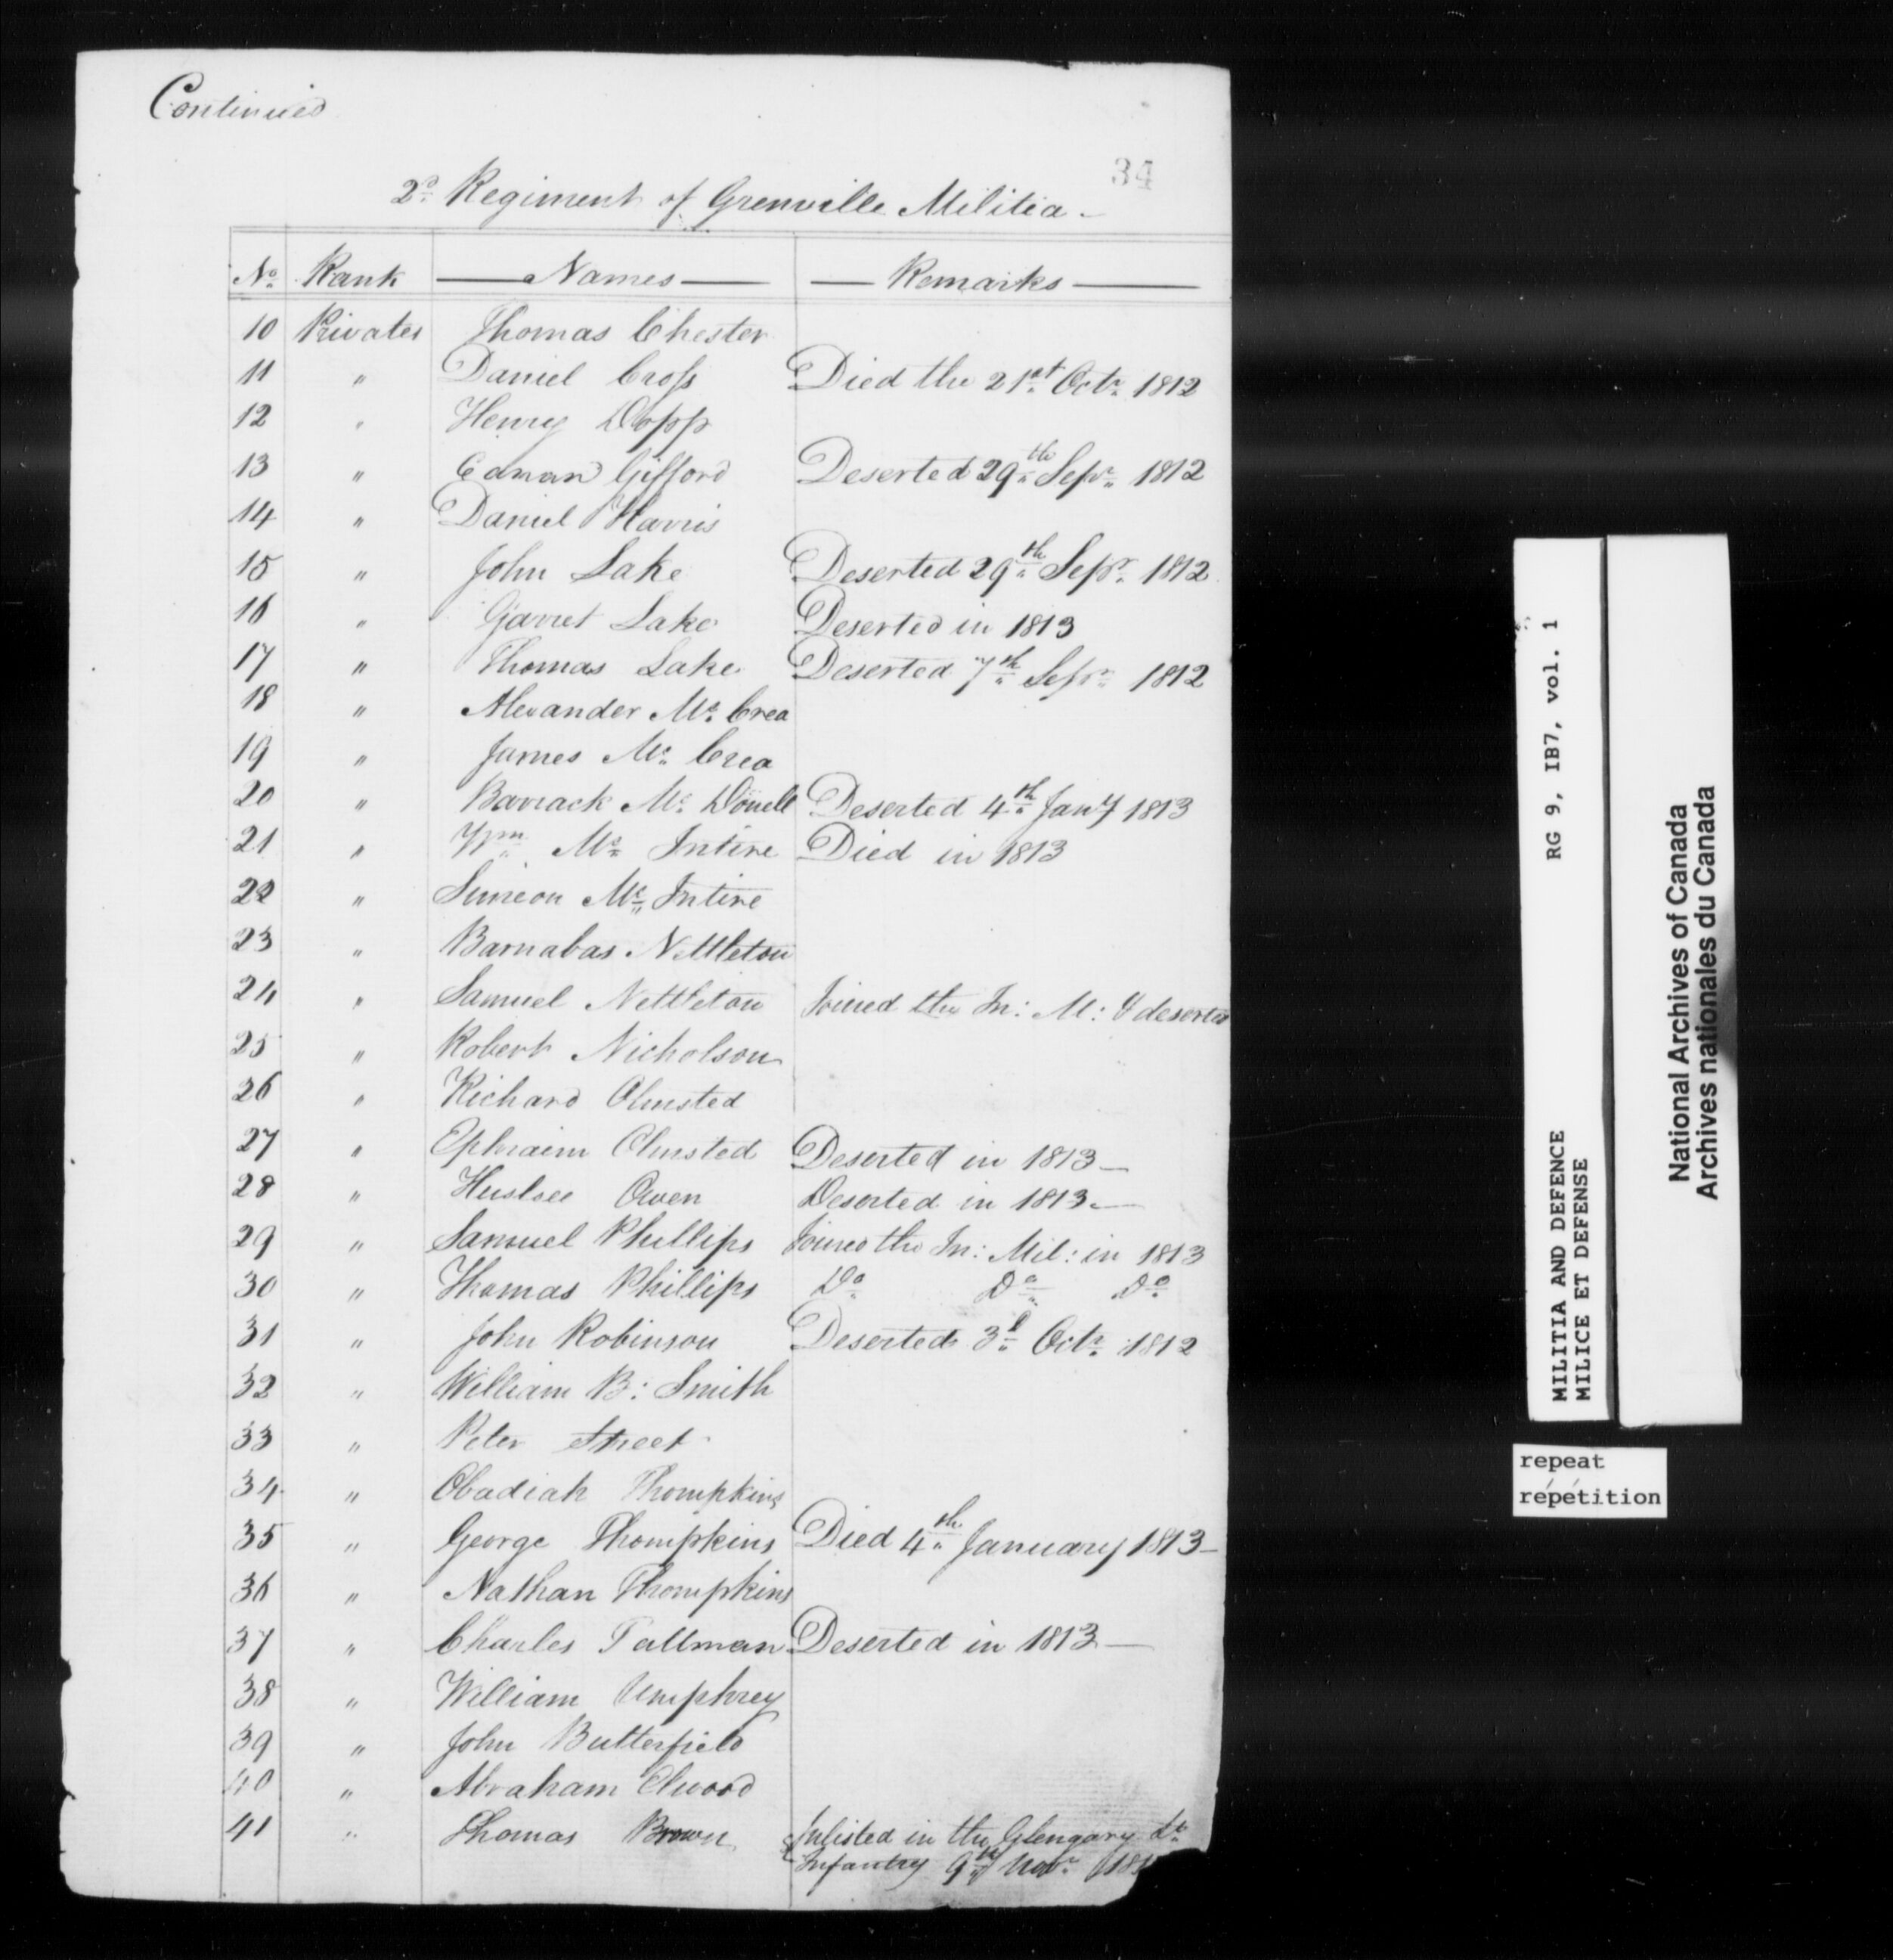 Continued
34
2d Regiment of Grenville Militia
No Rank Names Remarks
10 Privates Thomas Chester
11 " Daniel Cross Died the 21st Octr 1812
12 " Henry Dopp
13 " Edman Gifford Deserted 29th Sepr 1812
14 " Daniel Harris
15 " John Lake Deserted 29th Sepr 1812
16 " Garret Lake Deserted in 1813
17 " Thomas Lake Deserted 7th Sepr 1812
18 " Alexander Mc Crea
19 " James Mc Crea
20 " Barrack Mc Donell Deserted 4th Jany 1813
21 " Wm Mc Intire Died in 1813
22 " Simeon Mc Intire
23 " Barnabas Nettleton
24 " Samuel Nettleton Joined the In: M: & deserted
25 " Robert Nicholson
26 " Richard Olmsted
27 " Ephraim Olmsted Deserted in 1813
28 " Owen Deserted in 1813
29 " Samuel Phillips Joined the In: Mil: in 1813
30 " Thomas Phillips Do Do Do
31 " John Robinson Deserted 3d Octr 1812
32 " William B: Smith
33 " Peter Street
34 " Obadiah Thompkins
35 " George Thompkins Died 4th January 1813
36 " Nathan Thompkins
37 " Charles Tallman Deserted in 1813
38 " William Umphrey
39 " John Butterfield
40 " Abraham Elwood
41 " Thomas Brown Inlisted in the Glengary Lt
Infantry 9th Novr 181
RG 9, IB7, vol. 1
MILITIA AND DEFENCE
MILICE ET DEFENSE
National Archives of Canada
Archives nationales du Canada
repeat
répétition